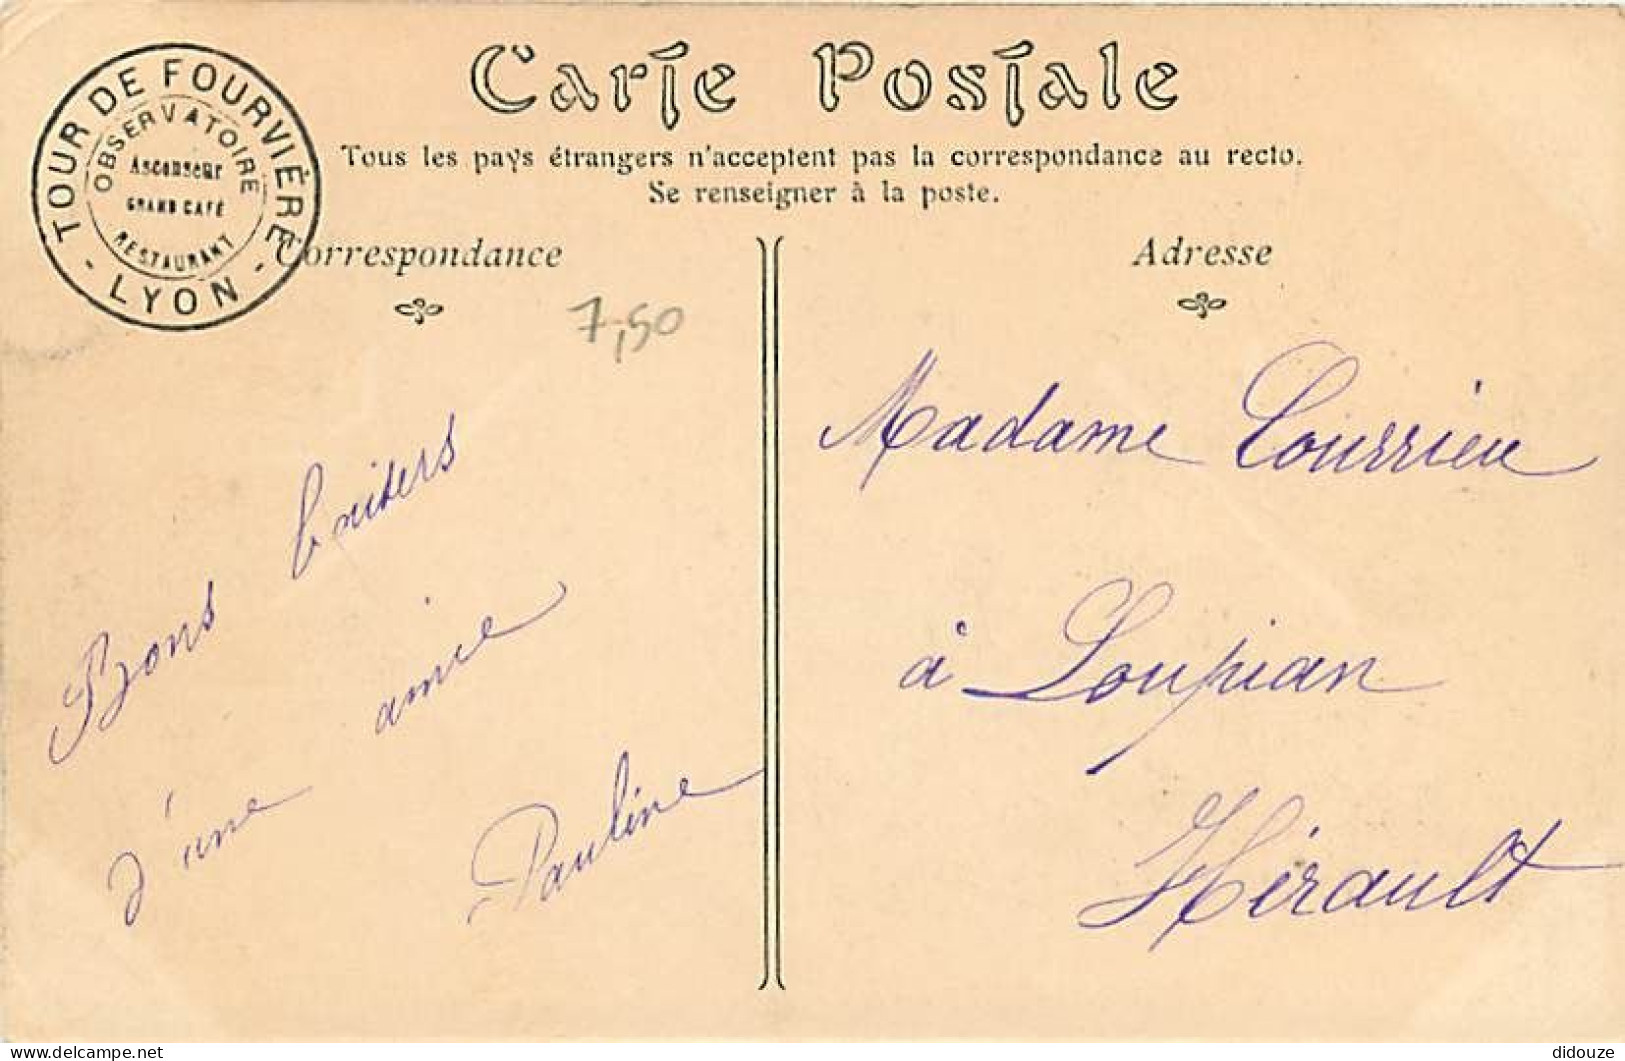 Carte Postale
Tous les pays étrangers n'acceptent pas la correspondance au recto.
Se renseigner à la poste.
TOUR DE FOURVIÈRE
OBSERVATOIRE
Ascenseur
GRAND CAFÉ
RESTAURANT
- LYON -
Correspondance
7,50
Bons baisers
d'une amie
Pauline
Adresse
Madame Courrieu
à Loupian
Hérault
delcampe.net
didouze